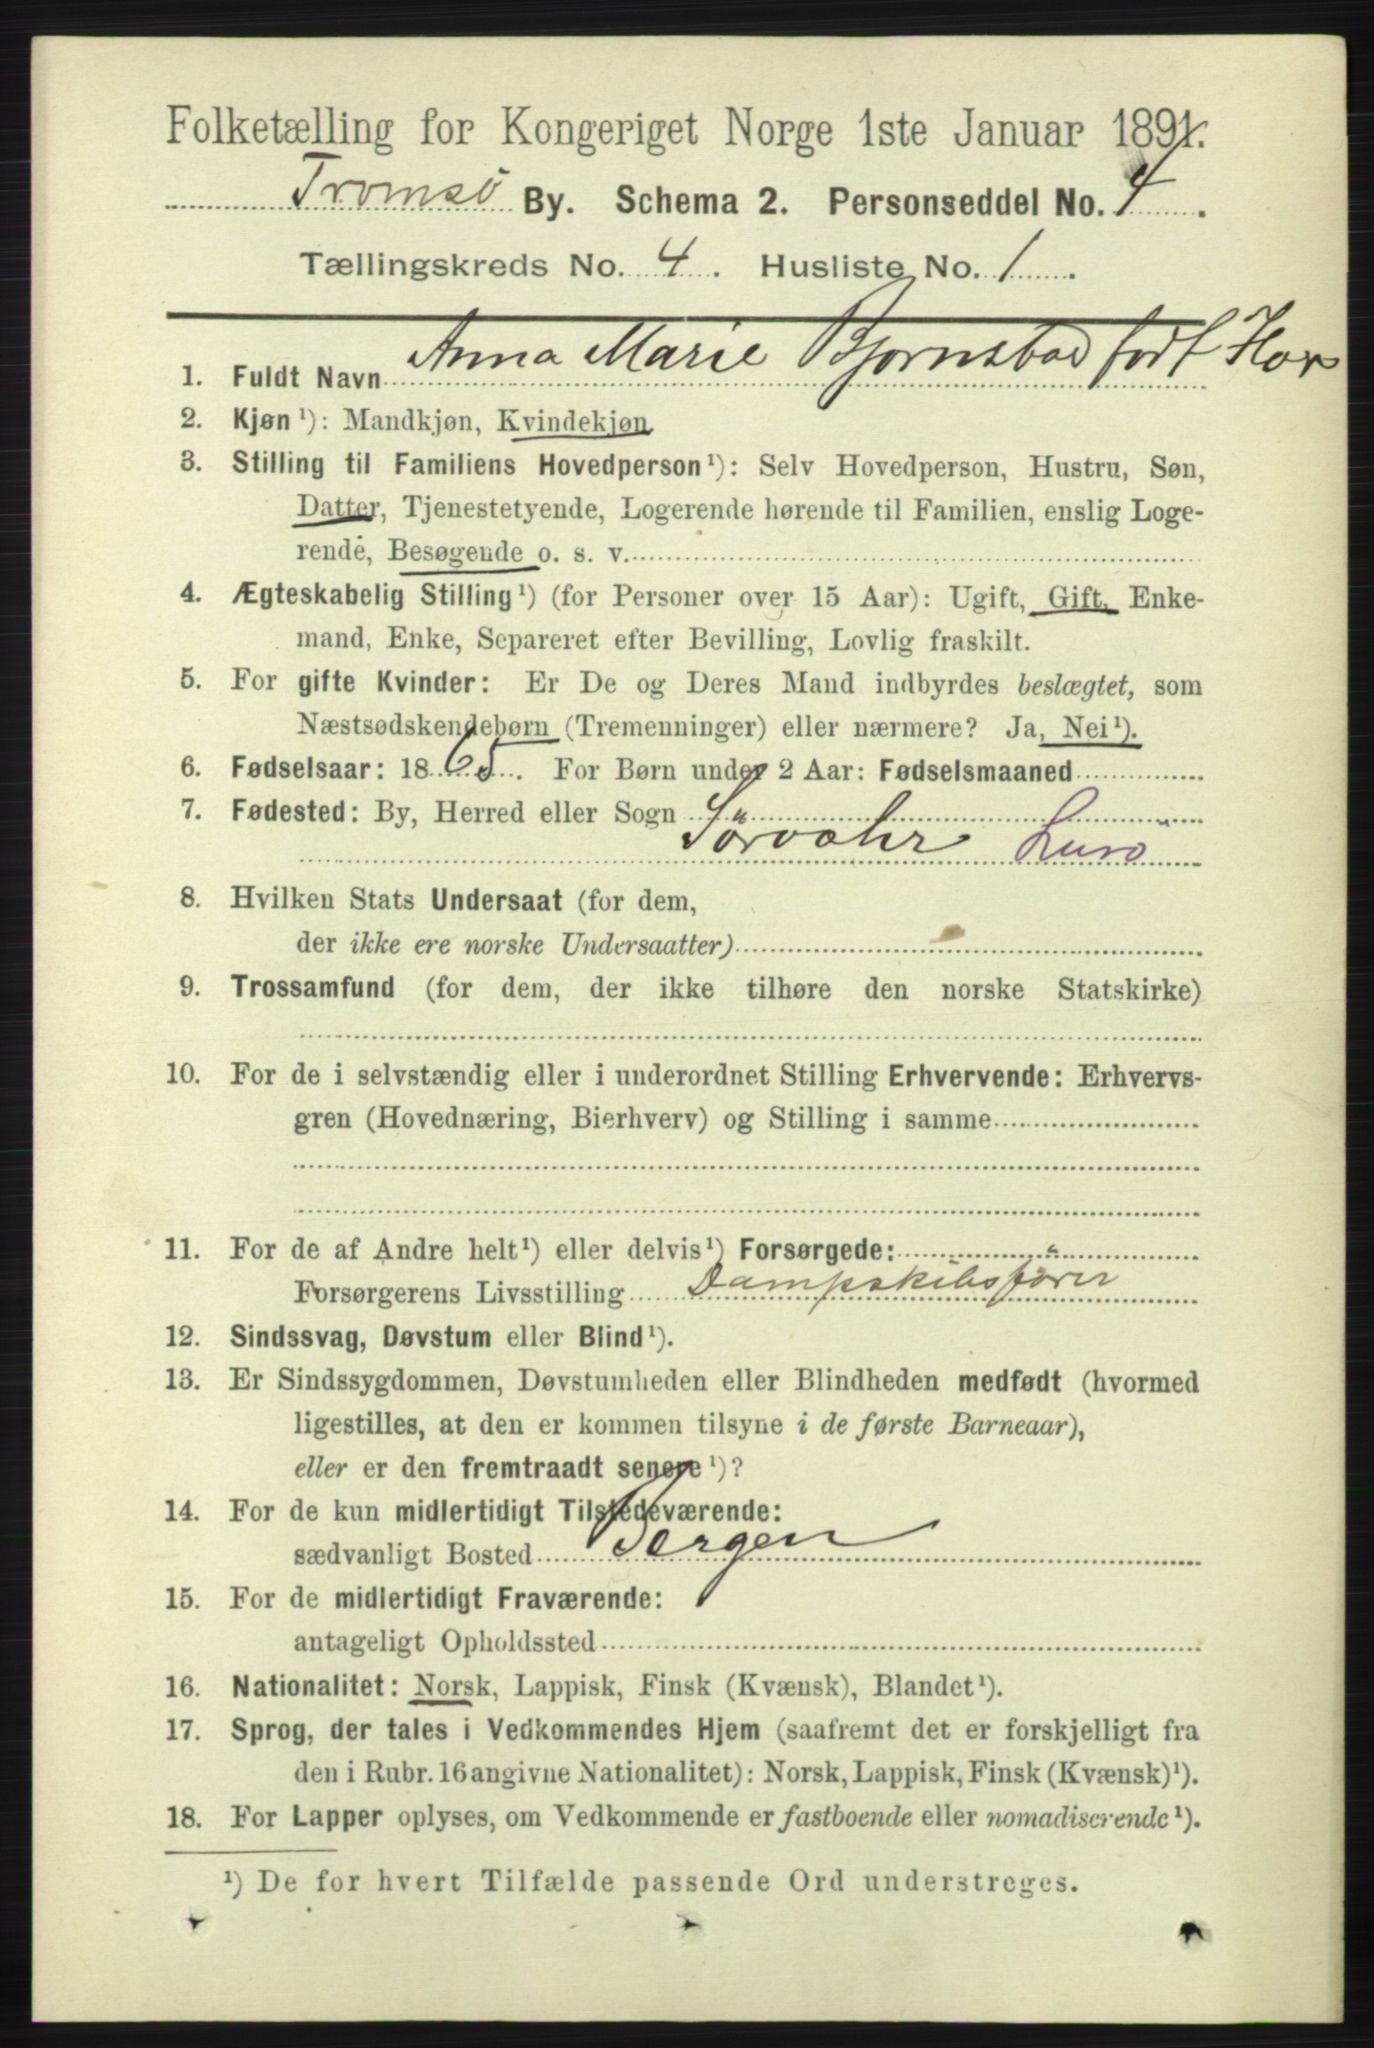 Folketælling for Kongeriget Norge 1ste Januar 1891.
Tromsö By. Schema 2. Personseddel No. 4.
Tællingskreds No. 4. Husliste No. 1.
1. Fuldt Navn Anna Marie Bjornstad född Hor
2. Kjøn¹): Mandkjøn, Kvindekjøn
3. Stilling til Familiens Hovedperson¹): Selv Hovedperson, Hustru, Søn,
Datter, Tjenestetyende, Logerende hørende til Familien, enslig Loge-
rende, Besøgende o. s. v.
4. Ægteskabelig Stilling¹) (for Personer over 15 Aar): Ugift, Gift, Enke-
mand, Enke, Separeret efter Bevilling, Lovlig fraskilt.
5. For gifte Kvinder: Er De og Deres Mand indbyrdes beslægtet, som
Næstsødskendebørn (Tremenninger) eller nærmere? Ja, Nei¹).
6. Fødselsaar: 1865. For Børn under 2 Aar: Fødselsmaaned
7. Fødested: By, Herred eller Sogn
Sörvahr Lurö
8. Hvilken Stats Undersaat (for dem,
der ikke ere norske Undersaatter)
9. Trossamfund (for dem, der ikke tilhøre den norske Statskirke)
10. For de i selvstændig eller i underordnet Stilling Erhvervende: Erhvervs-
gren (Hovednæring, Bierhverv) og Stilling i samme
11. For de af Andre helt¹) eller delvis¹) Forsørgede:
Forsørgerens Livsstilling Dampskibsförer
12. Sindssvag, Døvstum eller Blind¹).
13. Er Sindssygdommen, Døvstumheden eller Blindheden medfødt (hvormed
ligestilles, at den er kommen tilsyne i de første Barneaar),
eller er den fremtraadt senere¹)?
14. For de kun midlertidigt Tilstedeværende:
sædvanligt Bosted Bergen
15. For de midlertidigt Fraværende:
antageligt Opholdssted
16. Nationalitet: Norsk, Lappisk, Finsk (Kvænsk), Blandet¹).
17. Sprog, der tales i Vedkommendes Hjem (saafremt det er forskjelligt fra
den i Rubr. 16 angivne Nationalitet): Norsk, Lappisk, Finsk (Kvænsk)¹).
18. For Lapper oplyses, om Vedkommende er fastboende eller nomadiserende¹).
¹) De for hvert Tilfælde passende Ord understreges.